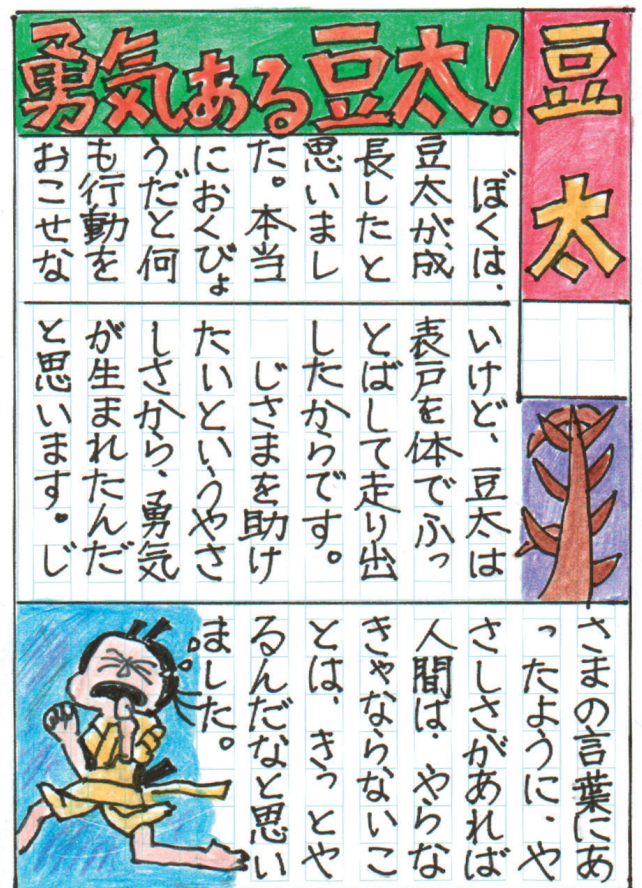 豆太
勇気ある豆太!
ぼくは、
豆太が、成
長したと
思いまし
た。本当
におくびょ
うだと何
も行動を
おこせな
いけど、豆太は
表戸を体でふっ
とばして走り出
したからです。
じさまを助け
たいというやさ
しさから、勇気
が生まれたんだ
と思います。じ
さまの言葉にあ
ったように、や
さしさがあれば
人間は、やらな
きゃならないこ
とは、きっとや
るんだなと思い
ました。